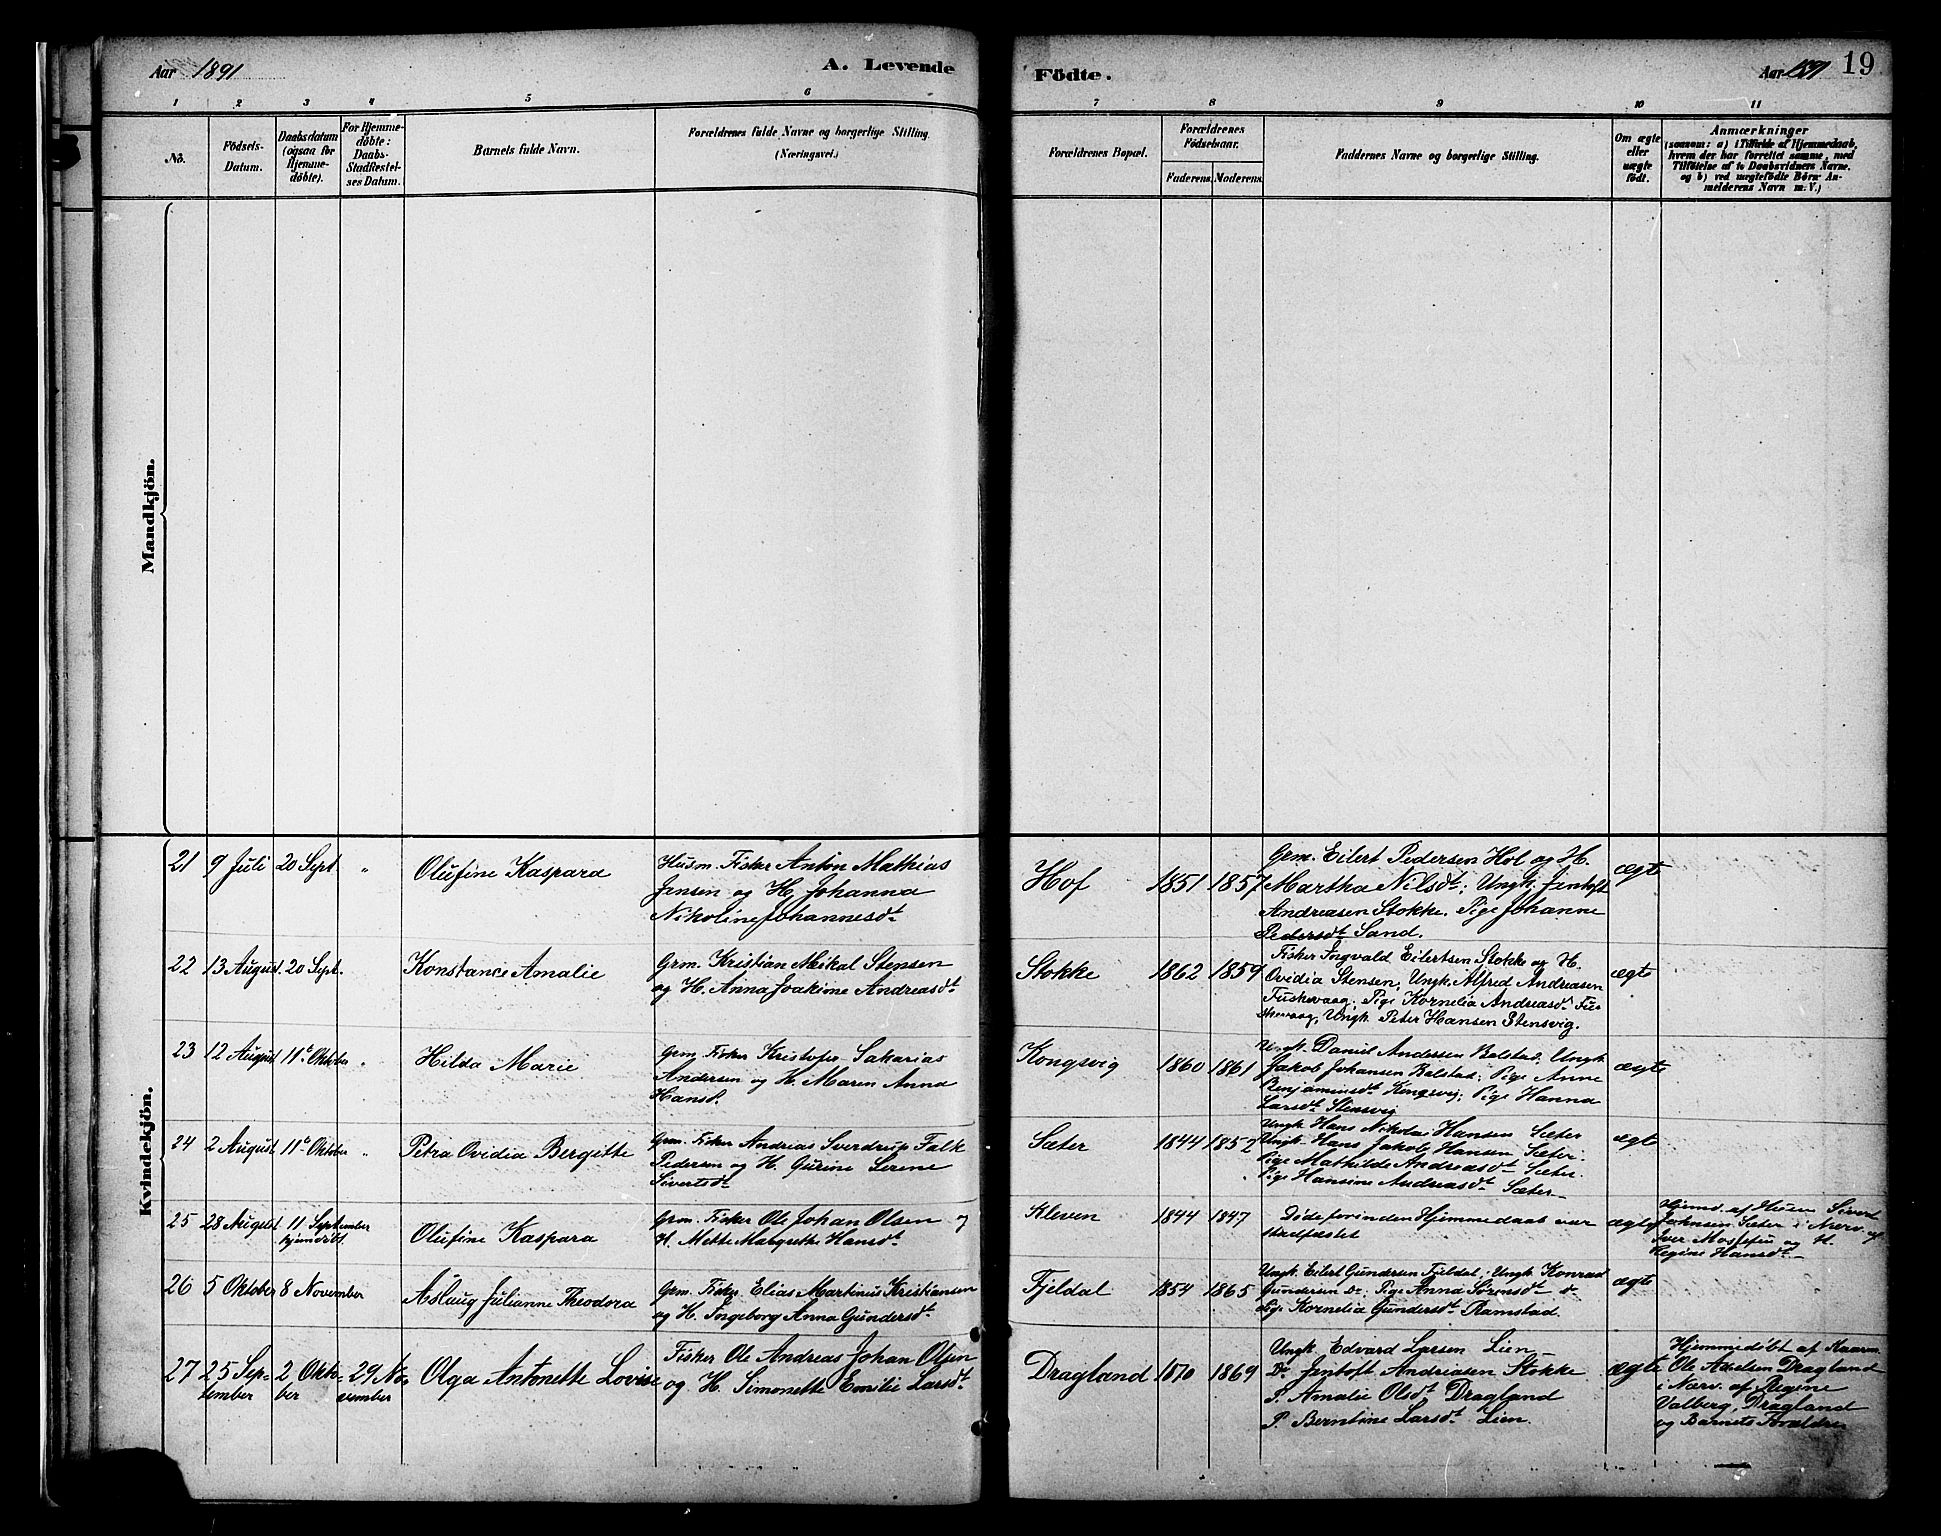 Aar 1891
A. Levende
Födte.
Aar 1891
19
1 2 3 4 5 6 7 8 9 10 11
No.
Födsels-
Datum.
Daabsdatum
(ogsaa for
Hjemme-
döbte).
For Hjemme-
döbte:
Daabs-
Stadfæstel-
ses Datum.
Barnets fulde Navn.
Forældrenes fulde Navne og borgerlige Stilling.
(Næringsvei.)
Forældrenes Bopæl.
Forældrenes
Födselsaar.
Faderens. Moderens.
Faddernes Navne og borgerlige Stilling.
Om ægte
eller
uægte
födt.
Anmærkninger
(saasom: a) i Tilfælde af Hjemmedaab,
hvem der har forrettet samme, med
Tilföielse af to Daabsvidners Navne.
og b) ved uægtefödte Börn An-
melderens Navn m. V.)
Mandkjön.
Kvindekjön.
21 9 Juli 20 Sept. " Olufine Kaspara
Husm. Fisker Anton Mathias
Jensen og H. Johanna
Nikoline Johannesdt.
Hof 1851 1857
Grm. Eilert Pedersen Hol og H.
Martha Nilsdt; Ungk. Jentoft
Andreasen Stokke. Pige Johanne
Pedersdt Sand.
ægte
22 13 August 20 Sept. Konstance Amalie
Grm. Kristian Meikal Stensen
og H. Anna Joakime Andreasdt.
Stokke 1862 1859
Fisker Ingvald Eilertsen Stokke og H.
Ovidia Stensen, Ungk. Alfred Andreasen
Fuskevaag, Pige Kornelia Andreasdt Fus-
kevaag, Ungk. Peter Hansen Stensvig.
ægte
23 12 August 11te Oktober " Hilda Marie
Grm. Fisker Kristofer Sakarias
Andersen og H. Maren Anna
Hansd.
Kongsvig 1860 1861
Ungk. Daniel Andersen Balstad, Ungk.
Jakob Johansen Balstad; Pige Anne
Benjaminsdt Kongsvig; Pige Hanna
Larsdt Stensvig
ægte
24 2 August 11te Oktober " Petra Ovidia Bergitte
Grm. Fisker Andrias Sverdrup Falk
Pedersen og H. Gurine Serene
Sivertsdt
Sæter 1844 1852
Ungk. Hans Nikolai Hansen Sæter
Ungk. Hans Jakob Hansen Sæter.
Pige Mathilde Andreasdt Sæter.
Pige Hansine Andreasdt Sæter.
ægt
25 28 August 11 September
hjemdøbt.
Olufine Kaspara
Grm. Fisker Ole Johan Olsen og
H. Mette Malgrethe Hansdt.
Kleven 1844 1847
Døde forinden Hjemmedaab var
stadfæstet
ægte
Hjemd. af Sivert
Johnsen Sæter i Nærv. af
Iver og H.
Regine Hansdt.
26 5 Oktober 8 November
Aslaug Julianne Theodora
Grm. Fisker Elias Martinus Kristiansen
og H. Ingeborg Anna Gundersdt.
Fjeldal 1854 1865
Ungk. Eilert Gundersen Fjeldal; Ungk. Konrad
Gundersen Do; Pige Anna Sørensdt do
Pige Kornelia Gundersdt Ramstad.
ægte
27 25 Sep-
tember
2 Okto-
ber
29 No-
vember
Olga Antonette Lovise
Fisker Ole Andreas Johan Olsen
og H. Simonette Emilie Larsdt.
Dragland 1870 1869
Ungk. Edvard Larsen Lien
Do. Jentoft Andriasen Stokke
P. Amalie Olsdt Dragland
P. Berntine Larsdt Lien.
ægte
Hjemmedöbt af Kaarm.
Ole Adelsen Dragland
i Nærv. af Regine
Valberg, Dragland
og Barnets Forældre